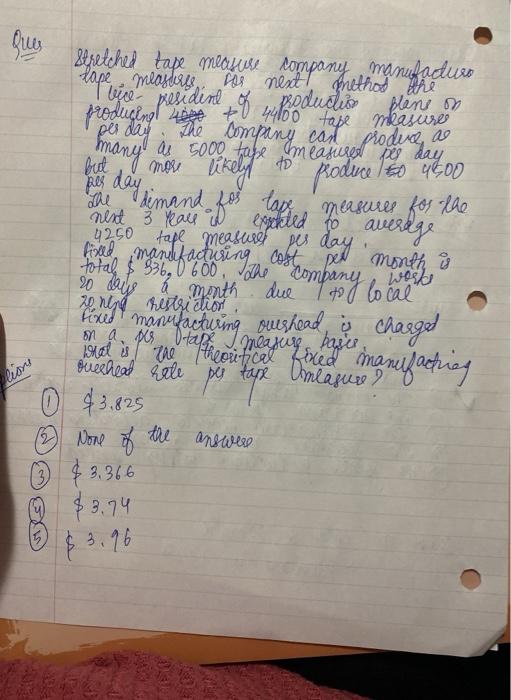 Ques
Stretched tape measure company manufactures
tape measures for next method the
vice-president of production plans on
producing 4000 to 4400 tape measures
per day. The company can produce as
many as 5000 tape measures per day
but more likely to produce 4500
per day.
The demand for tape measures for the
next 3 years is expected to average
4250 tape measures per day.
Fixed manufacturing cost per month is
total $ 336,600. The company works
20 days a month due to local
zoning restriction.
Fixed manufacturing overhead is charged
on a per tape measure basis.
What is the theoritical fixed manufacturing
overhead rate per tape measure?
ptions
① $3.825
② None of the answers
③ $3.366
④ $3.74
⑤ $3.96